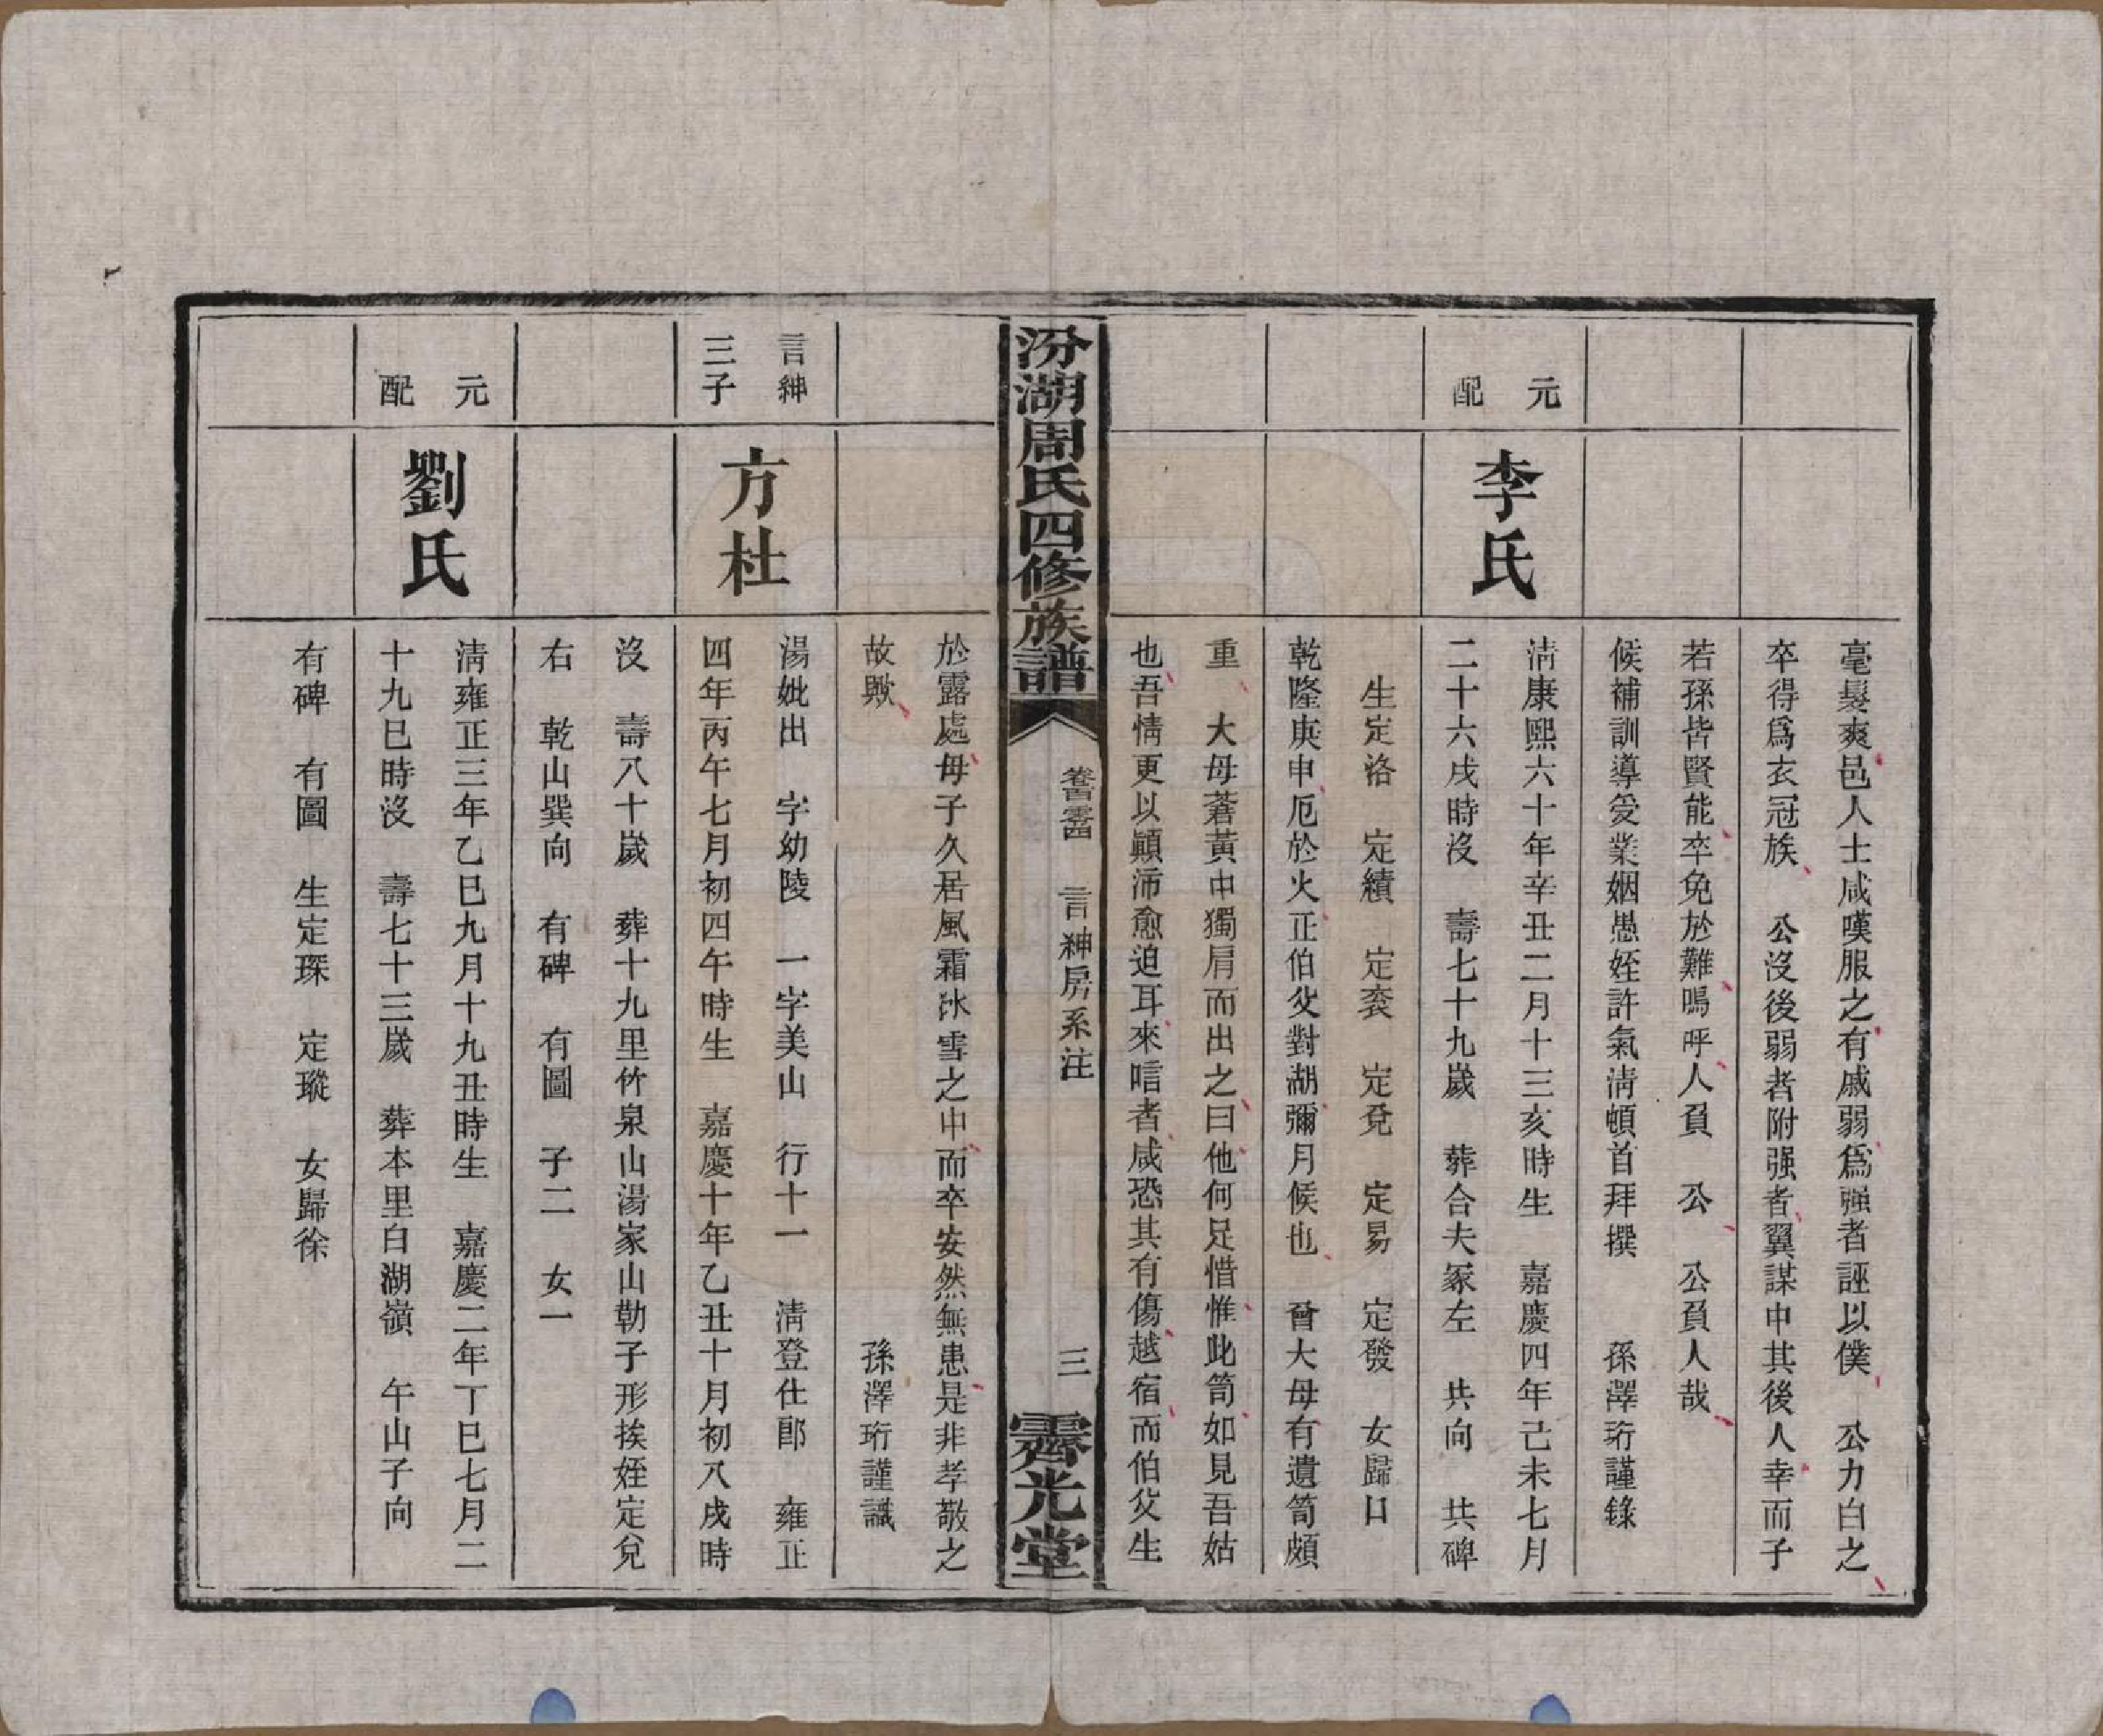 毫髮爽邑人士咸嘆服之有戚弱爲强者誣以僕　公力白之
卒得爲衣冠族　公沒後弱者附强者翼謀中其後人幸而子
若孫皆賢能卒免於難嗚呼人負　公　公負人哉
候補訓導受業姻愚姪許氣淸頓首拜撰　　孫澤珩謹錄
元配
李氏
淸康熙六十年辛丑二月十三亥時生　嘉慶四年己未七月
二十六戌時沒　壽七十九歲　葬合夫冢左　共向　共碑
生定洛　定績　定袞　定兗　定易　定發　女歸口
乾隆庚申厄於火正伯父對湖彌月候也　曾大母有遺笥頗
重　大母蒼黃中獨肩而出之曰他何足惜惟此笥如見吾姑
也吾情更以顚沛愈迫耳來唁者咸恐其有傷越宿而伯父生
汾湖周氏四修族譜
言紳房系注
三
霽光堂
於露處母子久居風霜冰雪之中而卒安然無患是非孝敬之
故歟　　孫澤珩謹識
言紳三子
方杜
湯妣出　字幼陵　一字美山　行十一　淸登仕郎　雍正
四年丙午七月初四午時生　嘉慶十年乙丑十月初八戌時
沒　壽八十歲　葬十九里竹泉山湯家山勒子形挨姪定兌
右　乾山巽向　有碑　有圖　子二　女一
元配
劉氏
淸雍正三年乙巳九月十九丑時生　嘉慶二年丁巳七月二
十九巳時沒　壽七十三歲　葬本里白湖嶺　午山子向
有碑　有圖　生定琛　定瑽　女歸徐